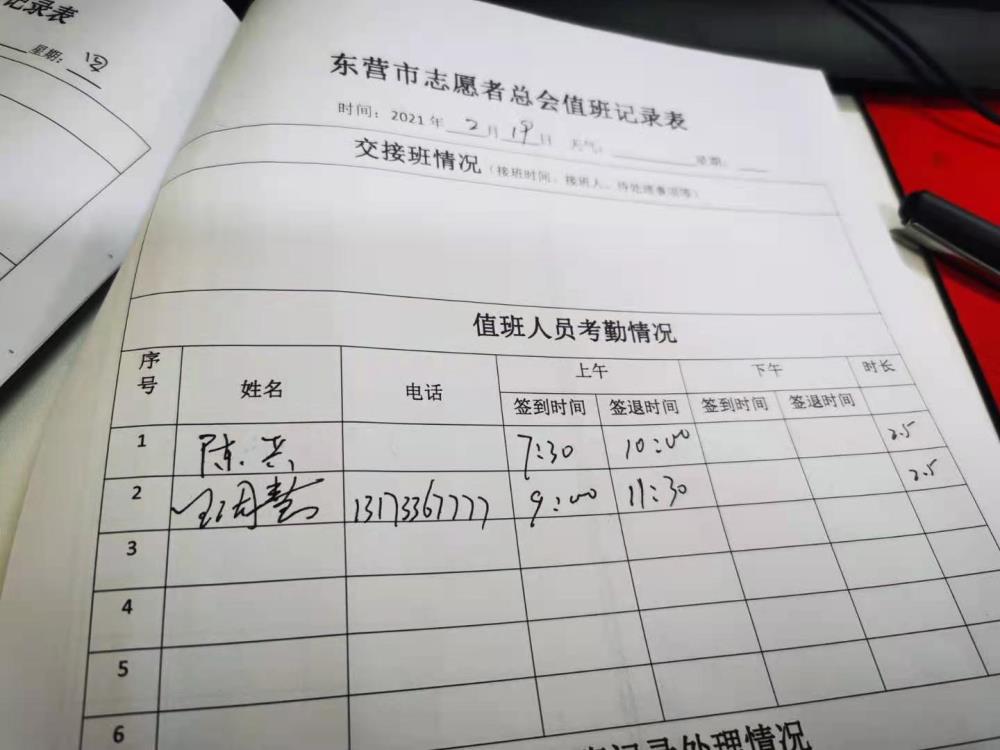 记录表
星期：
东营市志愿者总会值班记录表
时间：2021年 2月 19日 天气： 星期：
交接班情况（接班时间、接班人、待处理事项等）
值班人员考勤情况
序号 姓名 电话 上午 下午 时长
签到时间 签退时间 签到时间 签退时间
1 陈 7:30 10:00 2.5
2 13173367777 9:00 11:30 2.5
3
4
5
6
记录处理情况